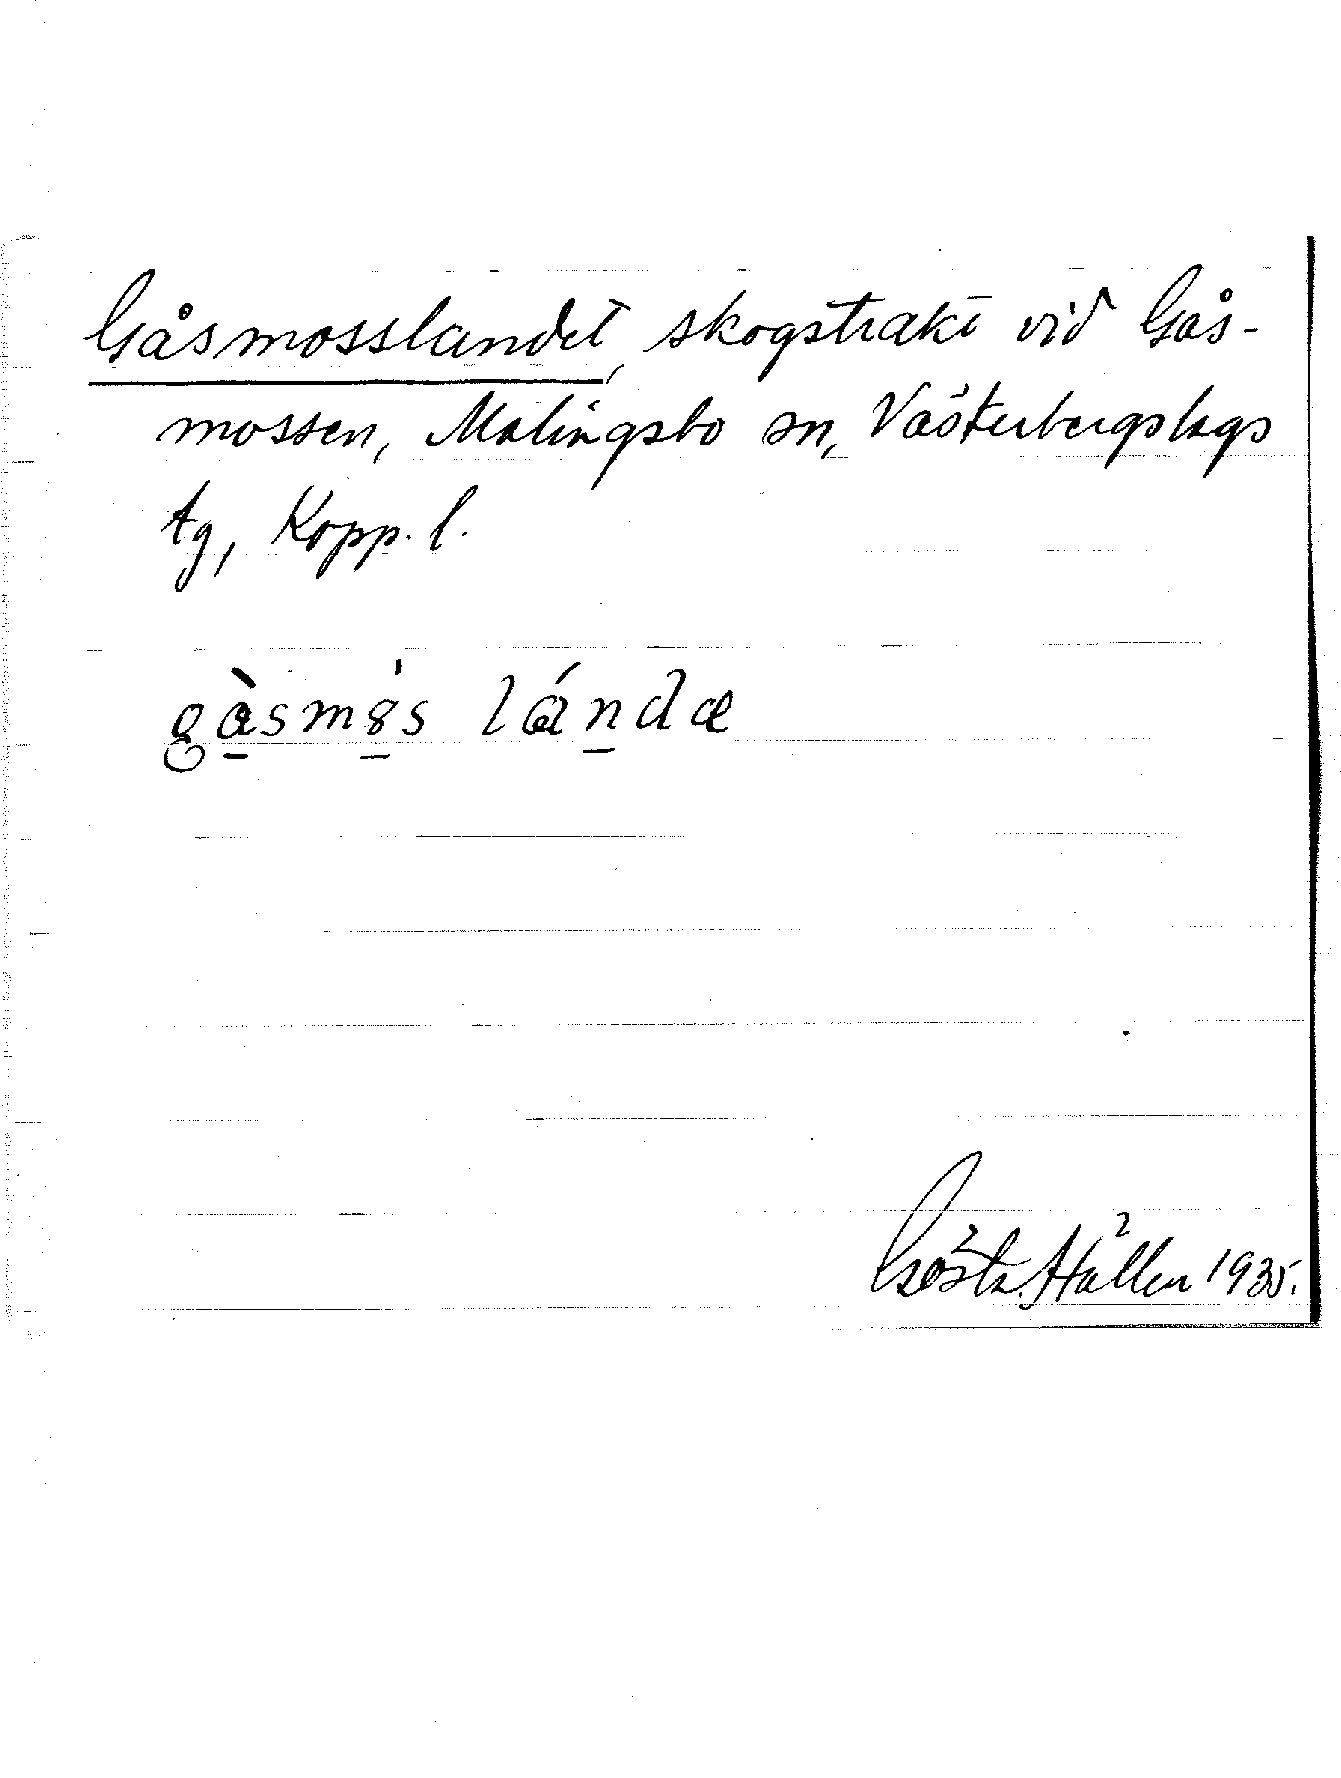 Gåsmosslandet, skogstrakt vid Gås-
mossen, Malingsbo sn, Västerbergslags
tg, Kopp. l.
gàsmȣ́s lándæ
Gösta Hällen 1935.